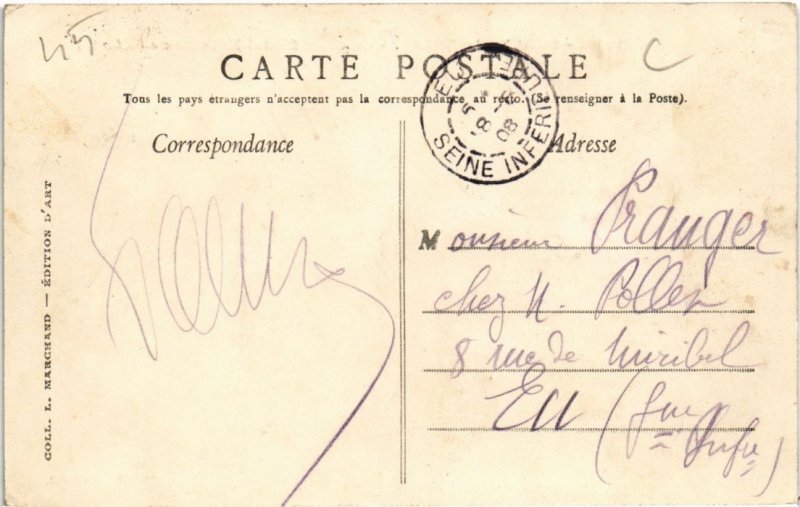 CARTE POSTALE
Tous les pays étrangers n'acceptent pas la correspondance au recto. (Se renseigner à la Poste).
Correspondance
Adresse
EU
8 08
SEINE INFERIEURE
COLL. L. MARCHAND — ÉDITION D'ART
Monsieur Pranger
chez M. Pollen
8 rue de Miribel
Eu (Sne
Infre)
C